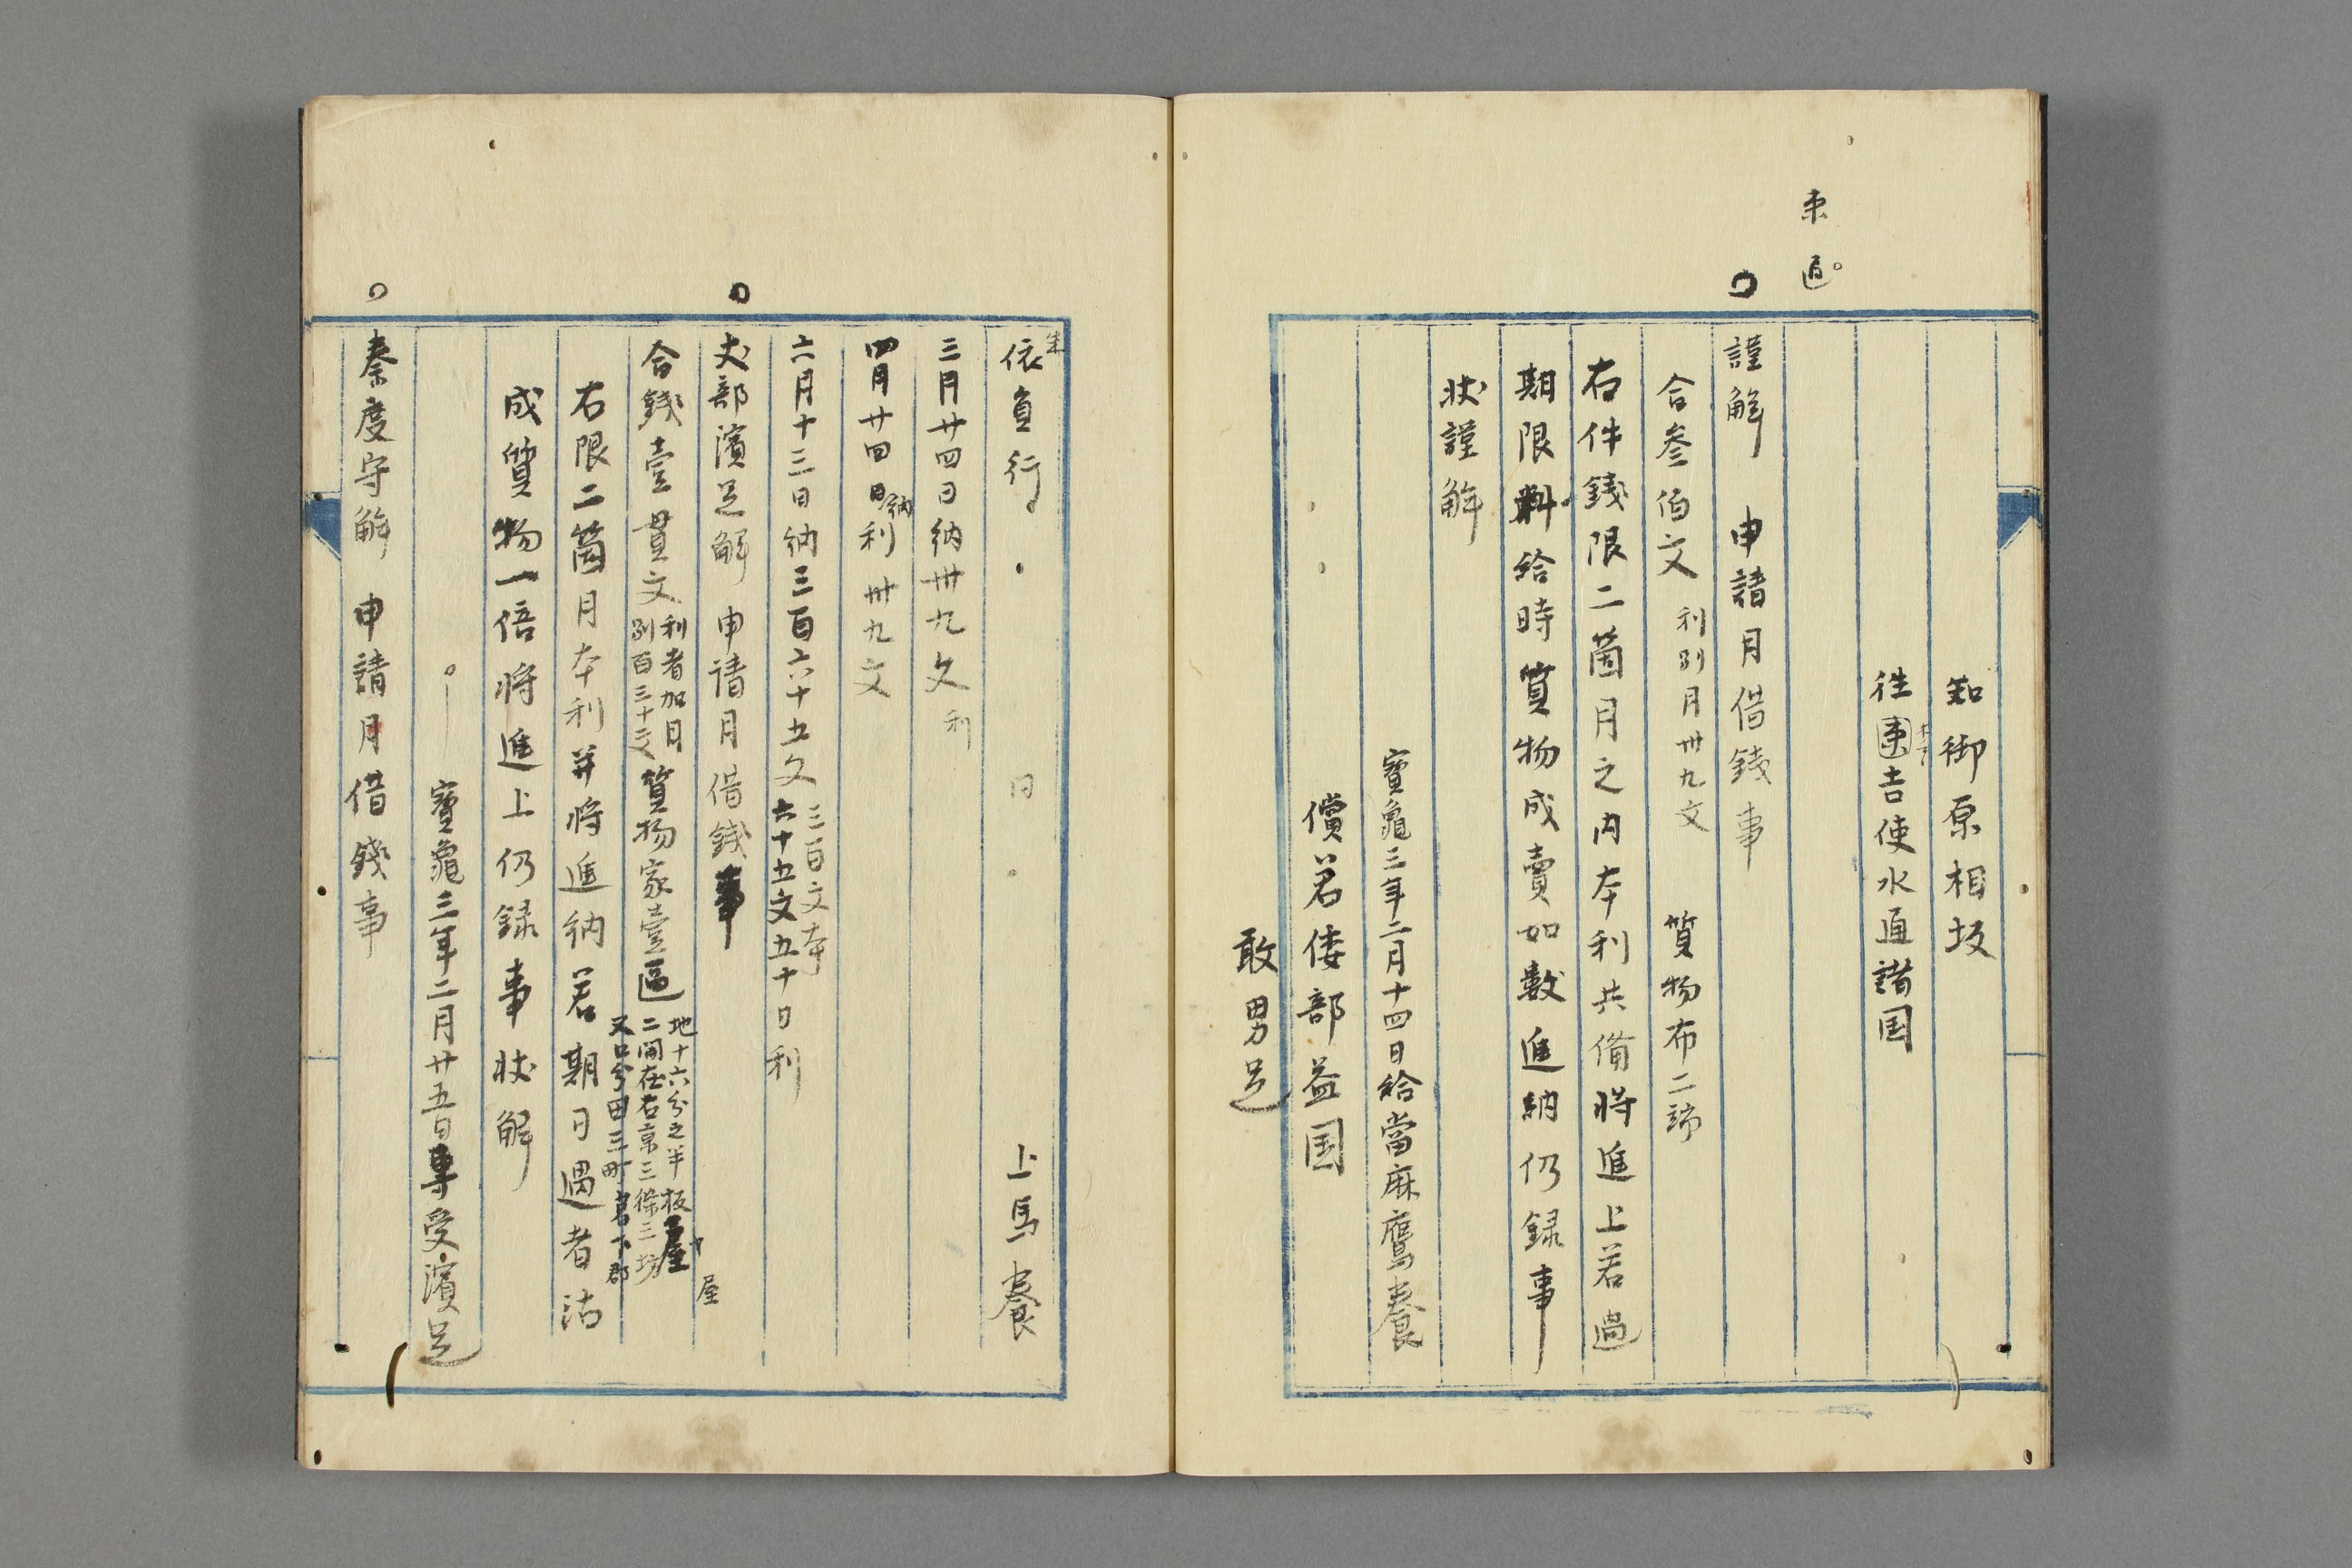 知御原相坂
徃東吉使水通諸国
東
通
謹解 申請月借錢事
合叁伯文 利別月卅九文 質物布二端
右件錢限二箇月之内本利共備将進上若過
期限料給時質物成賣如數進納仍録事
状謹解
寶龜三年二月十四日給當麻鷹養
償若倭部益国
敢男足
朱
依員行 上馬養
三月廿四日納卅九文利
四月廿四日納利卅九文
六月十三日納三百六十五文 三百文本
六十五文五十日利
丈部濱足解 申請月借錢事
合錢壹貫文 利者加月
別百三十文 質物家壹區 地十六分之半板屋
二間在右京三條三坊
又口分田三町葛下郡
屋
右限二箇月本利并将進納若期日過者沽
成質物一倍将進上仍録事状解
寶龜三年二月廿五日専受濱足
秦度守解 申請月借錢事